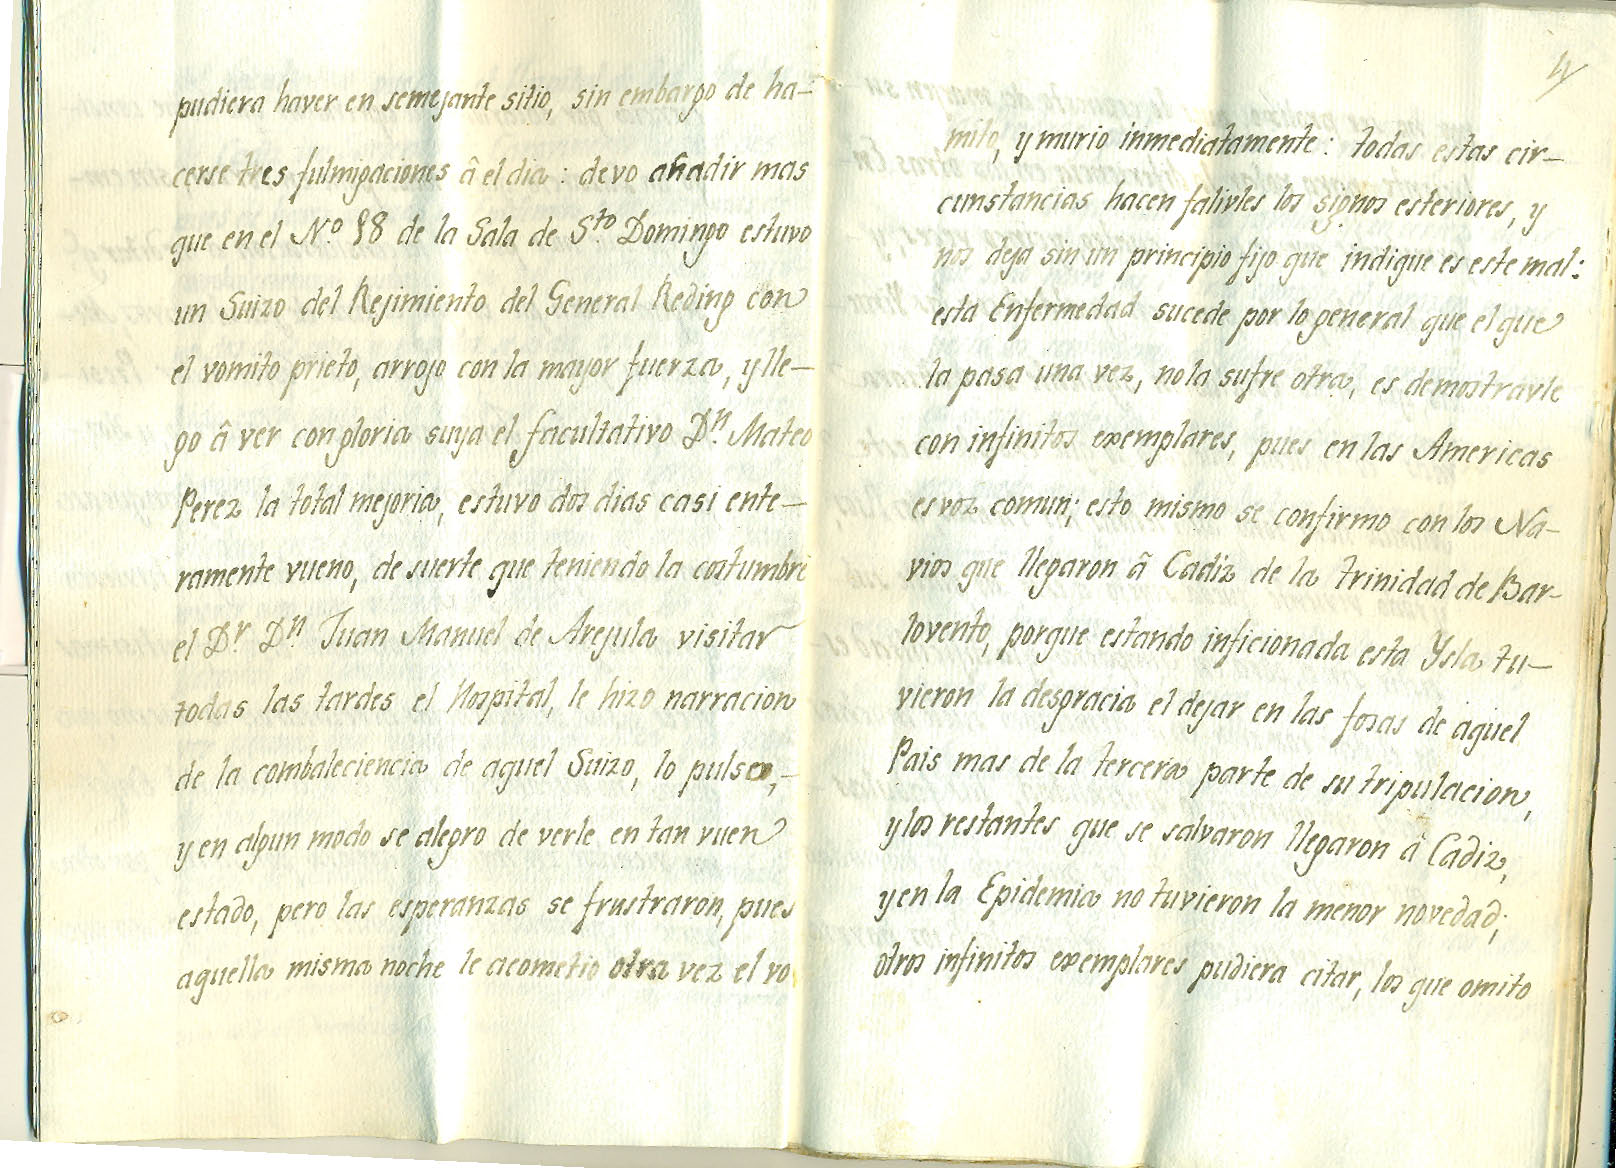 pudiera haver en semejante sitio, sin embargo de ha-
cerse tres fulmigaciones â el dia : devo añadir mas
que en el N.º 58 de la Sala de S.to Domingo estuvo
un Suizo del Rejimiento del General Reding con
el vomito prieto, arrojo con la mayor fuerza, y lle-
go â ver con gloria suya el facultativo D.n Mateo
Perez la total mejoria, estuvo dos dias casi ente-
ramente vueno, de suerte que teniendo la costumbre
el D.r D.n Juan Manuel de Arejula visitar
todas las tardes el Hospital, le hizo narracion
de la combaleciencia de aquel Suizo, lo pulseo,-
y en algun modo se alegro de verle en tan vuen
estado, pero las esperanzas se frustraron, pues
aquella misma noche le acometio otra vez el vo
4
mito, y murio inmediatamente : todas estas cir-
cunstancias hacen falivles los signos esteriores, y
nos deja sin un principio fijo que indique es este mal :
esta Enfermedad sucede por lo general que el que
la pasa una vez, no la sufre otra, es demostravle
con infinitos exemplares, pues en las Americas
es voz comun; esto mismo se confirmo con los Na-
vios que llegaron â Cadiz de la trinidad de Bar-
lovento, porque estando inficionada esta Ysla tu-
vieron la desgracia el dejar en las fosas de aquel
Pais mas de la tercera parte de su tripulacion,
y los restantes que se salvaron llegaron â Cadiz,
y en la Epidemia no tuvieron la menor novedad;
otros infinitos exemplares pudiera citar, los que omito